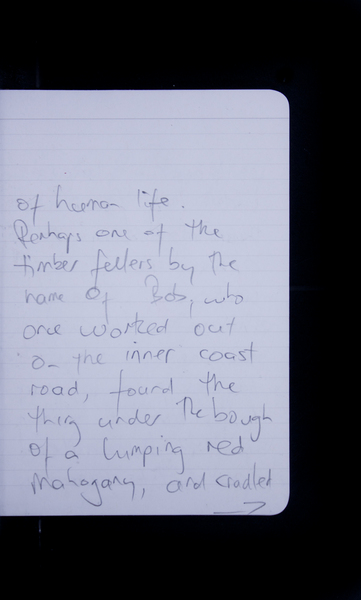 of human life.
Perhaps one of the
timber fellers by the
name of Bob, who
once worked out
on the inner coast
road, found the
thing under the bough
of a lumping red
mahogany, and cradled
→